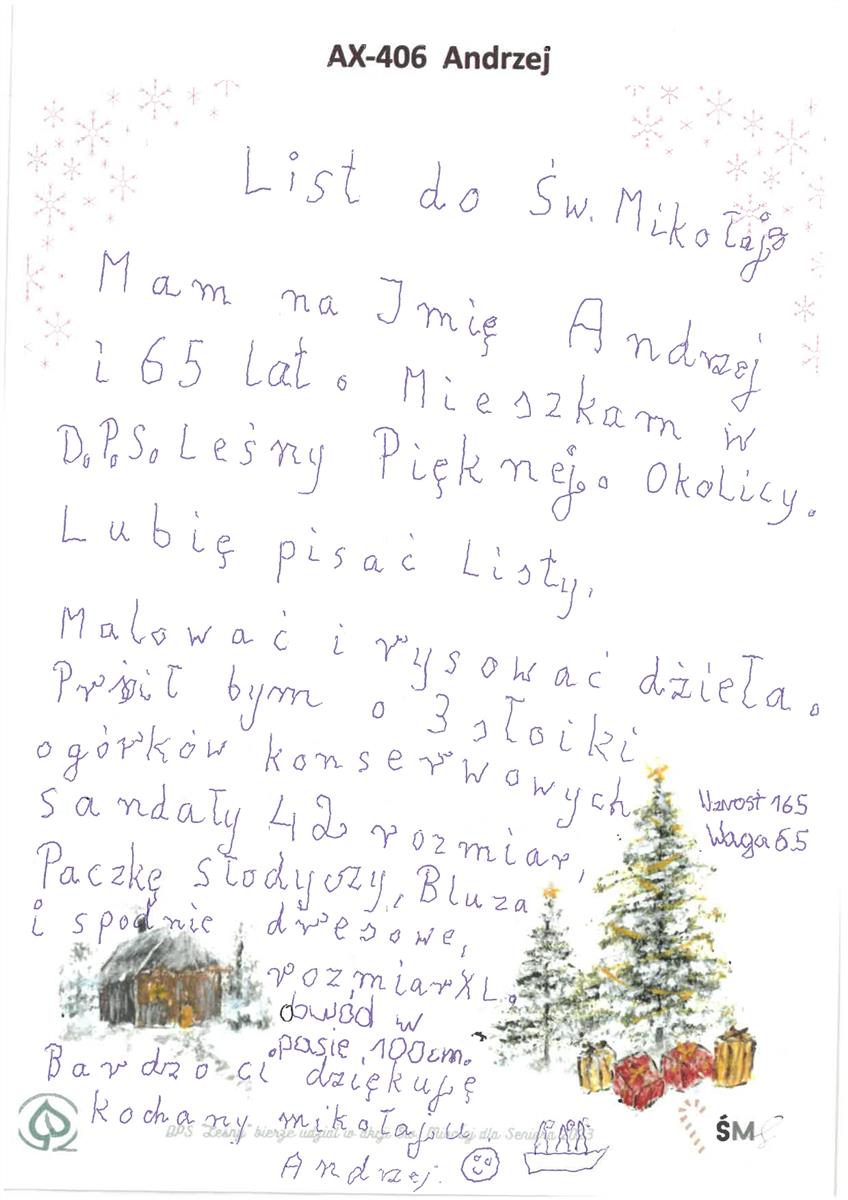 AX-406 Andrzej
List do Św. Mikołaja
Mam na Imię Andrzej
i 65 lat. Mieszkam w
D.P.S. Leśny Pięknej. Okolicy.
Lubię pisać Listy,
Malować i rysować dzieła.
Prosił bym o 3 słoiki
ogórków konserwowych
sandały 42 rozmiar,
Wzrost 165
Waga 65
Paczkę słodyczy, Bluza
i spodnie dresowe,
rozmiar XL.
obwód w
pasie 100cm.
Bardzo ci dziękuję
kochany mikołaju.
DPS "Leśny" bierze udział w akcji Św. Mikołaj dla Seniora
Andrzej.
ŚM